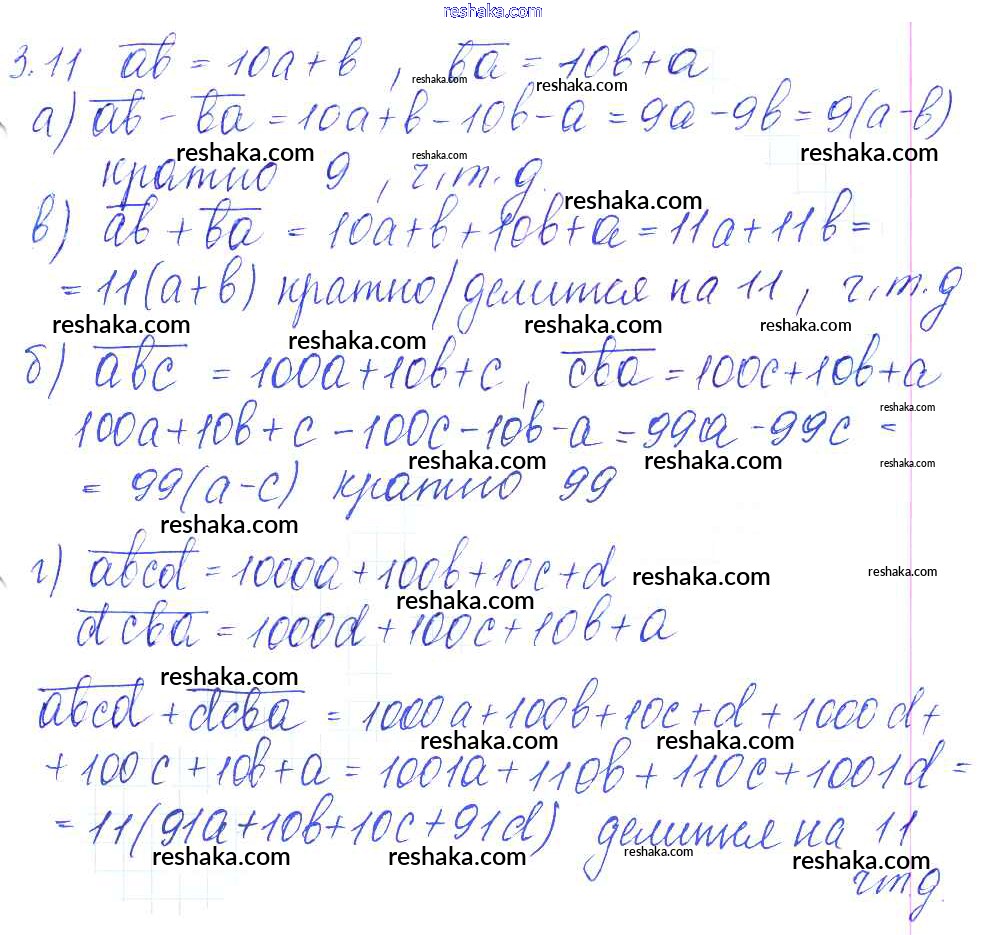 reshaka.com
3.11 ab = 10a + b , ba = 10b + a
reshaka.com reshaka.com
а) ab - ba = 10a + b - 10b - a = 9a - 9b = 9(a-b)
reshaka.com reshaka.com reshaka.com
кратно 9 , ч.т.д.
reshaka.com
в) ab + ba = 10a + b + 10b + a = 11a + 11b =
= 11(a+b) кратно/делится на 11 , ч.т.д
reshaka.com reshaka.com reshaka.com reshaka.com
б) abc = 100a + 10b + c , cba = 100c + 10b + a
reshaka.com
100a + 10b + c - 100c - 10b - a = 99a - 99c =
reshaka.com reshaka.com reshaka.com
= 99(a-c) кратно 99
reshaka.com
г) abcd = 1000a + 100b + 10c + d
reshaka.com reshaka.com
reshaka.com
dcba = 1000d + 100c + 10b + a
reshaka.com
abcd + dcba = 1000a + 100b + 10c + d + 1000d +
reshaka.com reshaka.com
+ 100c + 10b + a = 1001a + 110b + 110c + 1001d =
= 11(91a + 10b + 10c + 91d) делится на 11
reshaka.com reshaka.com reshaka.com reshaka.com
чтд.